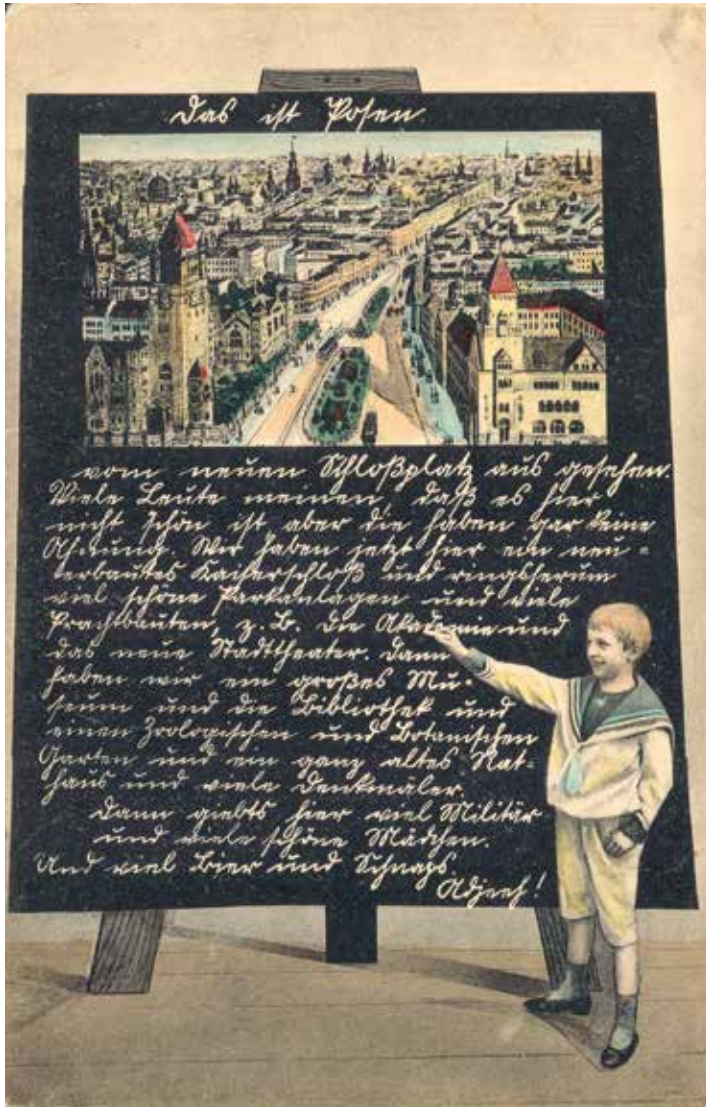 Das ist Posen
vom neuen Schloßplatz aus gesehen.
Viele Leute meinen, daß es hier
nicht schön ist, aber die haben gar keine
Ahnung. Wir haben jetzt hier ein neu-
erbautes Kaiserschloß und ringsherum
viel schöne Parkanlagen und viele
Prachtbauten, z. B. die Akademie und
das neue Stadttheater. Dann
haben wir ein großes Mu-
seum und die Bibliothek und
einen Zoologischen und Botanischen
Garten und ein ganz altes Rat-
haus und viele Denkmäler.
Dann giebts hier viel Militär
und viele schöne Mädchen.
Und viel Bier und Schnaps.
Adjeeh!